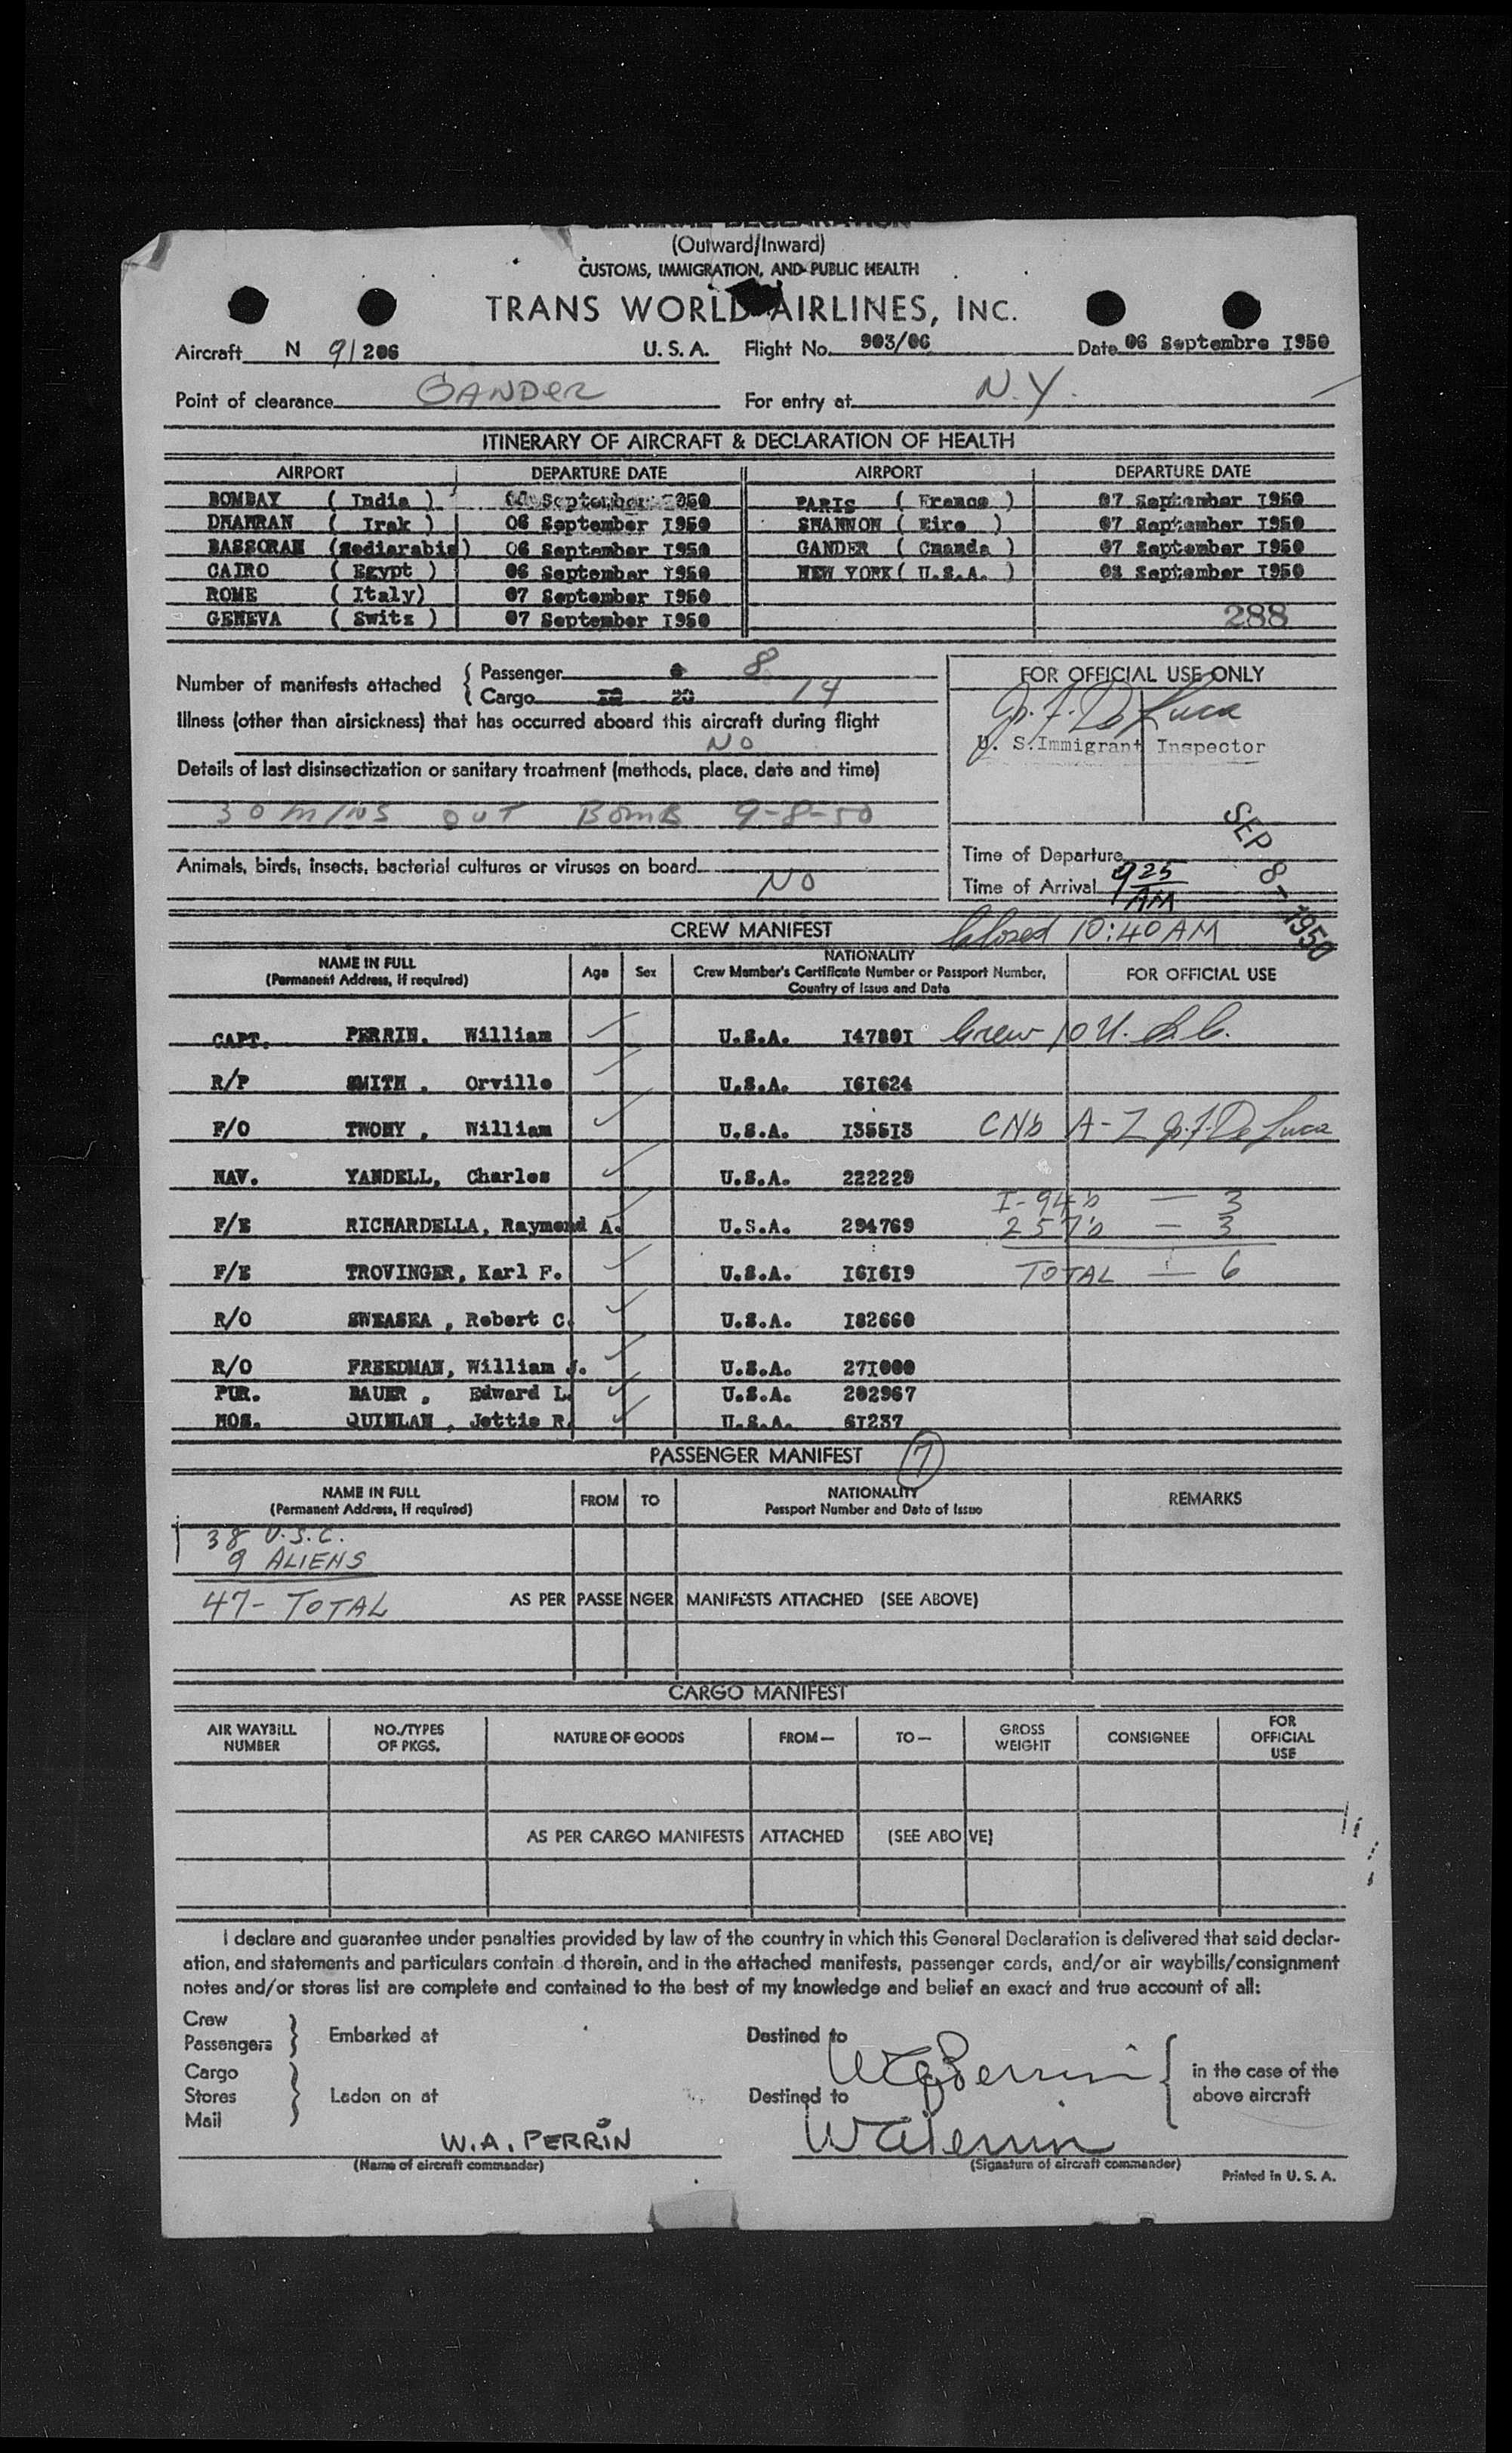 GENERAL DECLARATION
(Outward/Inward)
CUSTOMS, IMMIGRATION, AND PUBLIC HEALTH
TRANS WORLD AIRLINES, INC.
Aircraft N 91206 U. S. A. Flight No. 903/06 Date 06 Septembre I950
Point of clearance GANDER For entry at N.Y.
ITINERARY OF AIRCRAFT & DECLARATION OF HEALTH
AIRPORT DEPARTURE DATE AIRPORT DEPARTURE DATE
BOMBAY ( India ) September I950 PARIS ( France ) 07 September I950
DHAHRAN ( Irak ) 06 September I950 SHANNON ( Eire ) 07 September I950
BASSORAH 06 September I950 GANDER ( Cnanda ) 07 September I950
CAIRO ( Egypt ) 06 September I950 NEW YORK ( U.S.A. ) 08 September I950
ROME ( Italy) 07 September I950
GENEVA ( Switz ) 07 September I950 288
Number of manifests attached { Passenger 8
Cargo 20 14
FOR OFFICIAL USE ONLY
Illness (other than airsickness) that has occurred aboard this aircraft during flight
NO
U. S. Immigrant Inspector
Details of last disinsectization or sanitary treatment (methods, place, date and time)
30 MINS OUT BOMB 9-8-50
SEP 8 - 1950
Time of Departure
Animals, birds, insects, bacterial cultures or viruses on board NO
Time of Arrival 9 25 AM
CREW MANIFEST Closed 10:40 AM
NAME IN FULL
(Permanent Address, if required) Age Sex NATIONALITY
Crew Member's Certificate Number or Passport Number,
Country of Issue and Date FOR OFFICIAL USE
CAPT. PERRIN. William U.S.A. I47801 Crew 10 U.S.C.
R/P SMITH , Orville U.S.A. I6I624
F/O TWOHY , William U.S.A. I355I3 CNb A-Z J.F. De Luca
NAV. YANDELL, Charles U.S.A. 222229
I-94b — 3
F/E RICHARDELLA, Raymond A. U.S.A. 294769 257b — 3
F/E TROVINGER, Karl F. U.S.A. I6I6I9 TOTAL — 6
R/O SWEASEA , Robert C. U.S.A. I82660
R/O FREEDMAN, William J. U.S.A. 27I000
PUR. BAUER , Edward L. U.S.A. 202967
HOS. QUINLAN , Jettie R. U.S.A. 6I237
PASSENGER MANIFEST 7
NAME IN FULL
(Permanent Address, if required) FROM TO NATIONALITY
Passport Number and Date of Issue REMARKS
38 U.S.C.
9 ALIENS
47- TOTAL AS PER PASSENGER MANIFESTS ATTACHED (SEE ABOVE)
CARGO MANIFEST
AIR WAYBILL NUMBER NO./TYPES OF PKGS. NATURE OF GOODS FROM— TO— GROSS WEIGHT CONSIGNEE FOR OFFICIAL USE
AS PER CARGO MANIFESTS ATTACHED (SEE ABOVE)
I declare and guarantee under penalties provided by law of the country in which this General Declaration is delivered that said declar-
ation, and statements and particulars contain d therein, and in the attached manifests, passenger cards, and/or air waybills/consignment
notes and/or stores list are complete and contained to the best of my knowledge and belief an exact and true account of all:
Crew
Passengers } Embarked at Destined to
W A Perrin
Cargo
Stores } Laden on at Destined to { in the case of the above aircraft
Mail
W.A. PERRIN W A Perrin
(Name of aircraft commander) (Signature of aircraft commander)
Printed in U. S. A.